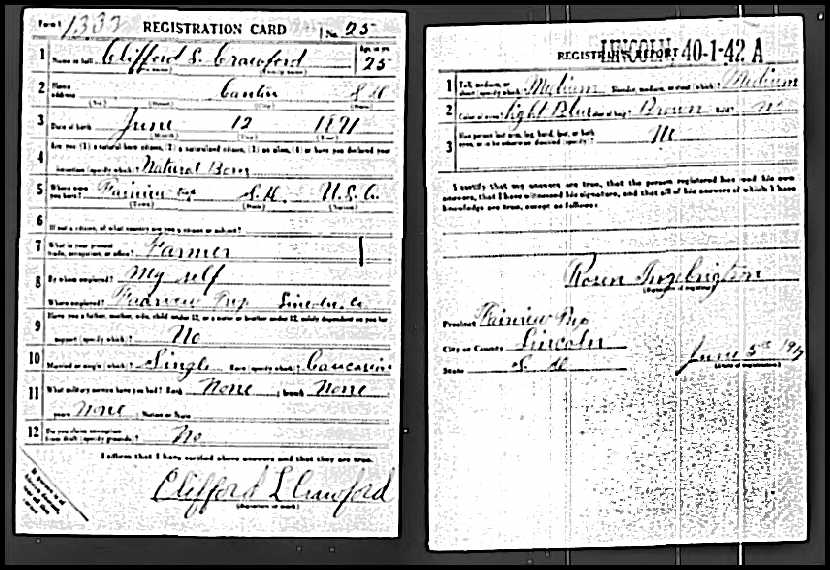 Form 1 1332 REGISTRATION CARD No. 25
1 Name in full Clifford S. Crawford Age, in yrs. 25
(Given name) (Family name)
2 Home address Canton S. D.
(No.) (Street) (City) (State)
3 Date of birth June 12 1891
(Month) (Day) (Year)
4 Are you (1) a natural-born citizen, (2) a naturalized citizen, (3) an alien, (4) or have you declared your
intention (specify which)? Natural Born
5 Where were you born? Fairview Twp S. D. U.S.A.
(Town) (State) (Nation)
6 If not a citizen, of what country are you a citizen or subject?
7 What is your present trade, occupation, or office? Farmer
8 By whom employed? My self
Where employed? Fairview Twp Lincoln Co
9 Have you a father, mother, wife, child under 12, or a sister or brother under 12, solely dependent on you for
support (specify which)? No
10 Married or single (which)? Single Race (specify which)? Caucasian
11 What military service have you had? Rank None ; branch None
years None ; Nation or State
12 Do you claim exemption from draft (specify grounds)? No
I affirm that I have verified above answers and that they are true.
Clifford L Crawford
(Signature or mark)
REGISTRAR'S REPORT
LINCOLN 40-1-42 A
1 Tall, medium, or short (specify which)? Medium Slender, medium, or stout (which)? Medium
2 Color of eyes? Light Blue Color of hair? Brown Bald? No
3 Has person lost arm, leg, hand, foot, or both eyes, or is he otherwise disabled (specify)?
I certify that my answers are true, that the person registered has read his own
answers, that I have witnessed his signature, and that all of his answers of which I have
knowledge are true, except as follows:
(Signature of registrar)
Precinct Fairview Twp
City or County Lincoln
State S. D.
June 5th 1917
(Date of registration)